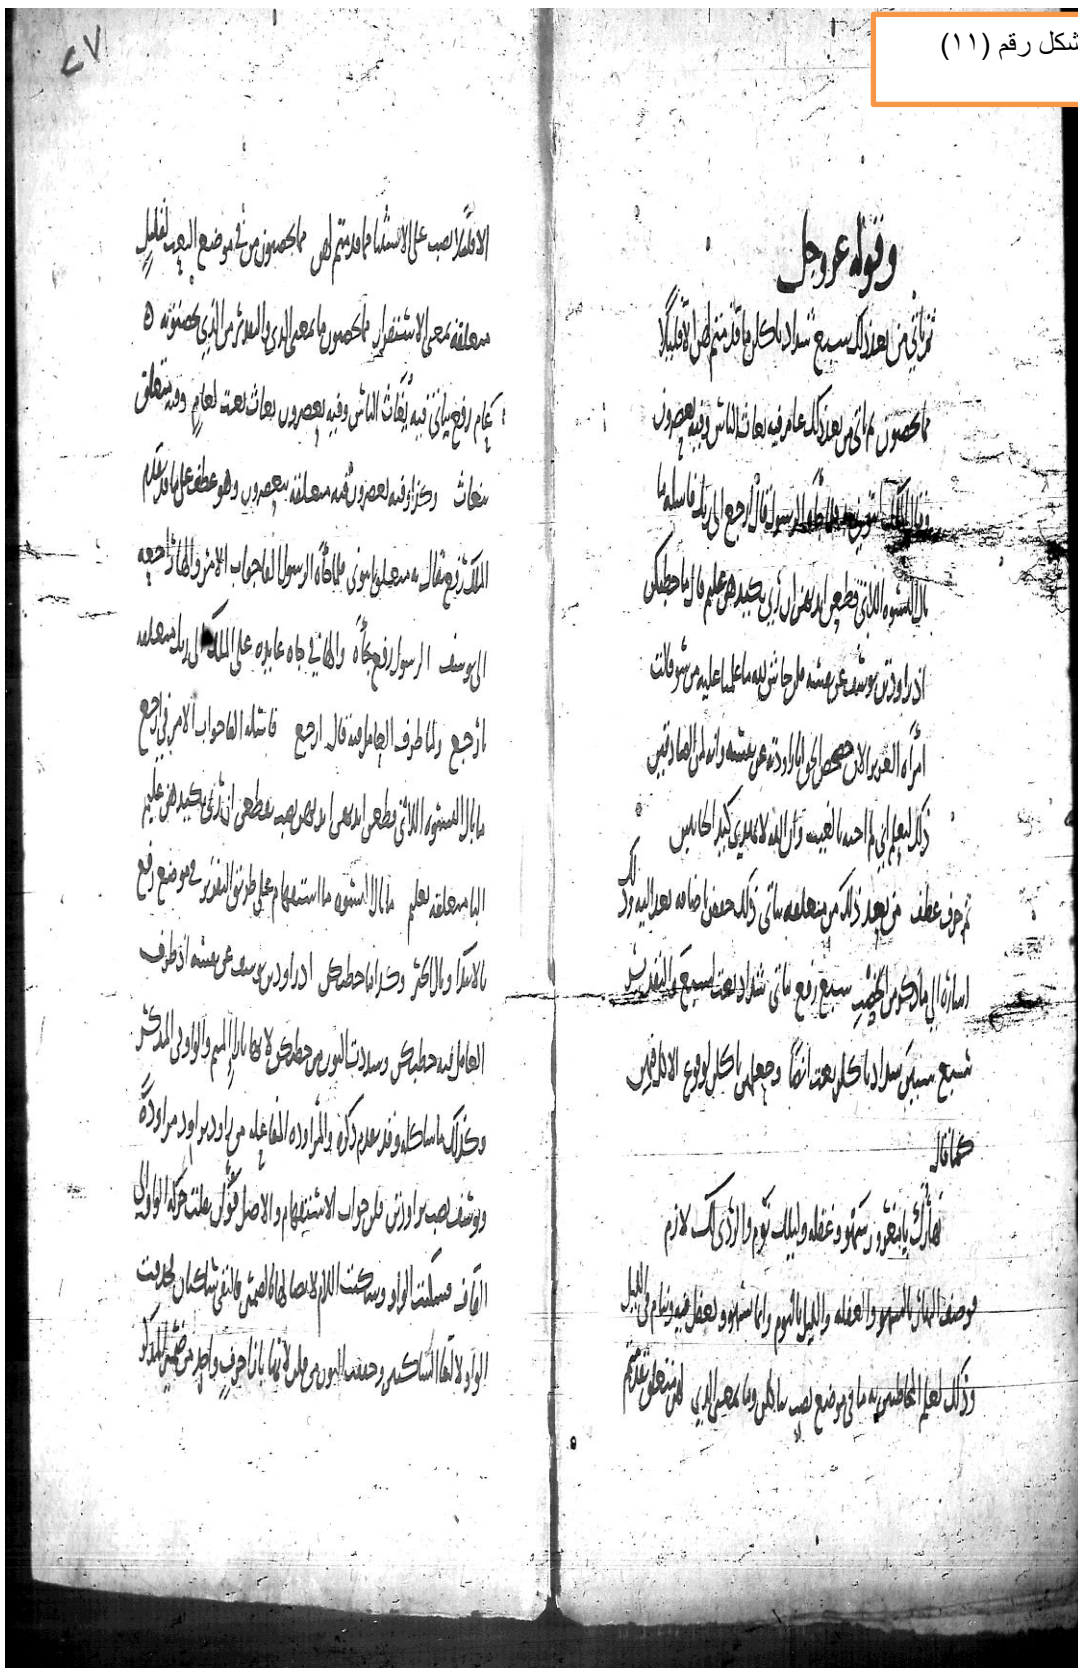 شكل رقم (١١)
وقوله عز وجل
ثم يأتي من بعد ذلك سبع شداد يأكلن ما قدمتم لهن إلا قليلا
مما تحصنون ثم يأتي من بعد ذلك عام فيه يغاث الناس وفيه يعصرون
وقال الملك ائتوني به فلما جاءه الرسول قال ارجع إلى ربك فاسأله ما
بال النسوة اللاتي قطعن أيديهن إن ربي بكيدهن عليم قال ما خطبكن
إذ راودتن يوسف عن نفسه قلن حاش لله ما علمنا عليه من سوء قالت
امرأة العزيز الآن حصحص الحق أنا راودته عن نفسه وإنه لمن الصادقين
ذلك ليعلم أني لم أخنه بالغيب وأن الله لا يهدي كيد الخائنين
ثم حرف عطف من بعد ذلك من متعلقة بيأتي ذلك خفض إضافة بعد إليه وذلك
إشارة إلى ما ذكر من الخصب سبع رفع بيأتي شداد نعت لسبع والتقدير
سبع سنين شداد يأكلن نعت أيضا وجعلهن يأكلن لوقوع الأكل فيهن
كما قال
نهارك يا مغرور سهو وغفلة وليلك نوم والردى لك لازم
فوصف النهار بالسهو والغفلة والليل بالنوم وإنما يسهو ويغفل فيه وينام في الليل
وذلك لعلم المخاطبين به ما في موضع نصب بيأكلن وما بمعنى الذي لهن متعلق بقدمتم
٢٧
إلا قليلا نصب على الاستثناء مما قدمتم لهن مما تحصنون من في موضع النعت لقليل
متعلقة بمعنى الاستقرار مما تحصنون ما بمعنى الذي والتقدير من الذي تحصنونه ه
عام رفع بيأتي فيه يغاث الناس وفيه يعصرون يغاث نعت لعام وفيه يتعلق
بيغاث وكذا وفيه يعصرون فيه متعلقة بيعصرون وهو عطف على ما قد تقدم
الملك رفع بقال به متعلق بائتوني فلما جاءه الرسول الفاء جواب الأمر والهاء راجعة
إلى يوسف الرسول رفع بجاءه والهاء في جاءه عائدة على الملك إلى ربك متعلقة
بارجع ولما ظرف العامل فيه قال ارجع فاسأله الفاء جواب الأمر في ارجع
ما بال النسوة اللاتي قطعن أيديهن أيديهن نصب بقطعن إن ربي بكيدهن عليم
الباء متعلقة بعليم ما بال النسوة ما استفهام على طريق التقرير في موضع رفع
بالابتداء وبال الخبر وكذا ما خطبكن إذ راودتن يوسف عن نفسه إذ ظرف
العامل فيه خطبكن وشددت النون من خطبكن لأنها بإزاء الميم والواو في المذكر
وكذلك ما شاكله وقد تقدم ذكره والمراودة المفاعلة من راود يراود مراودة
ويوسف نصب براودتن قلن جواب الاستفهام والأصل قولن نقلت حركة الواو إلى
القاف فسكنت الواو وسكنت اللام لاتصالها بالضمير فالتقى ساكنان فحذفت
الواو لالتقاء الساكنين وخففت النون من قلن لأنها بإزاء حرف واحد من ضمير المذكر